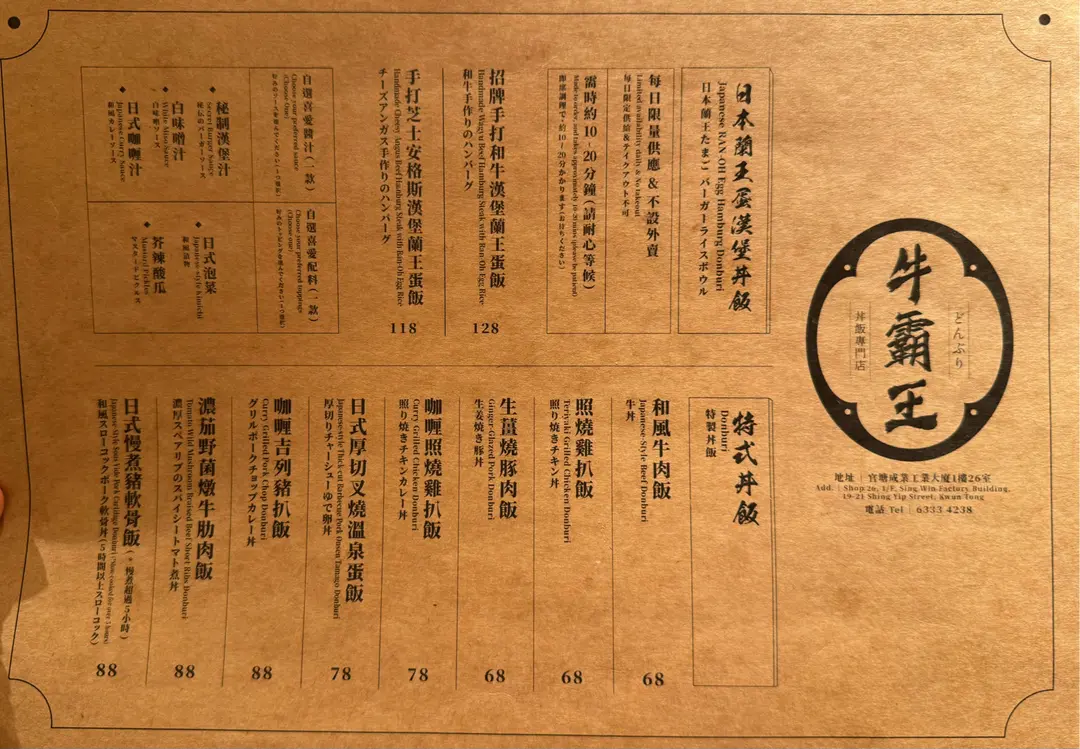 牛霸王
どんぶり
丼飯專門店
地址｜官塘成業工業大廈1樓26室
Add.｜Shop 26, 1/F, Sing Win Factory Building,
19-21 Shing Yip Street, Kwun Tong
電話 Tel｜6333 4238
日本蘭王蛋漢堡丼飯
Japanese RAN-OH Egg Hamburg Donburi
日本蘭王たまご バーガーライスボウル
每日限量供應 & 不設外賣
Limited availability daily & No takeout
毎日限定供給＆テイクアウト不可
需時約10-20分鐘(請耐心等候)
Made to order and takes approximately 10-20 mins (please be patient)
即席調理で、約10～20分かかります(お待ちください)
招牌手打和牛漢堡蘭王蛋飯
Handmade Wagyu Beef Hamburg Steak with Ran Oh Egg Rice
和牛手作りのハンバーグ
128
手打芝士安格斯漢堡蘭王蛋飯
Handmade Cheesy Angus Beef Hamburg Steak with Ran Oh Egg Rice
チーズアンガス手作りのハンバーグ
118
自選喜愛醬汁(一款)
Choose your preferred sauce
(Choose One)
◆ 秘制漢堡汁
Secret Burger Sauce
秘伝のバーガーソース
◆ 白味噌汁
White Miso Sauce
白味噌ソース
◆ 日式咖喱汁
Japanese Curry Sauce
和風カレーソース
自選喜愛配料(一款)
Choose your preferred toppings
(Choose one)
◆ 日式泡菜
Japanese-style Kimchi
和風漬物
◆ 芥辣酸瓜
Mustard Pickles
マスタードピクルス
特式丼飯
Donburi
特製丼飯
和風牛肉飯
Japanese-Style Beef Donburi
牛丼
68
照燒雞扒飯
Teriyaki Grilled Chicken Donburi
照り焼きチキン丼
68
生薑燒豚肉飯
Ginger-Glazed Pork Donburi
生姜焼き豚丼
68
咖喱照燒雞扒飯
Curry Grilled Chicken Donburi
照り焼きチキンカレー丼
78
日式厚切叉燒溫泉蛋飯
Japanese-style Thick-cut Barbecue Pork Onsen Tamago Donburi
厚切りチャーシューゆで卵丼
78
咖喱吉列豬扒飯
Curry Grilled Pork Chop Donburi
グリルポークチョップカレー丼
88
濃茄野菌燉牛肋肉飯
Tomato Wild Mushroom Braised Beef Short Ribs Donburi
濃厚スペアリブのスパイシートマト煮丼
88
日式慢煮豬軟骨飯(*慢煮超過5小時)
Japanese-Style Sous Vide Pork Cartilage Donburi (*Slow-cooked for over 5 hours)
和風スローコックポーク軟骨丼(5時間以上スローコック)
88